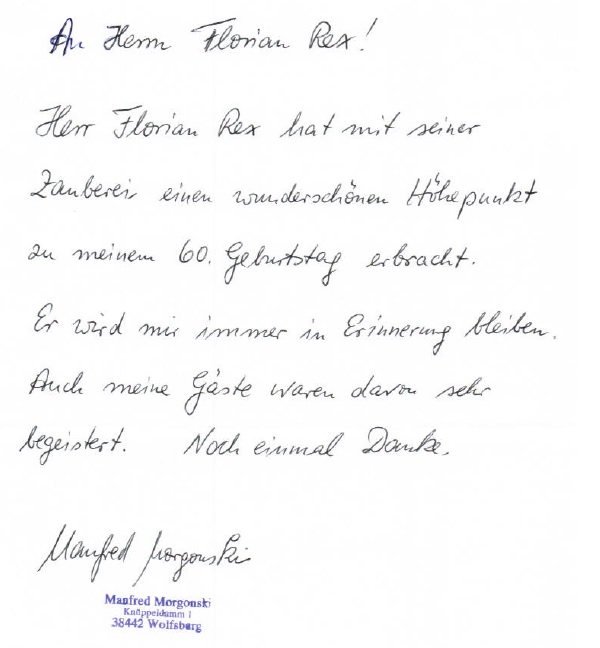 An Herrn Florian Rex!
Herr Florian Rex hat mit seiner
Zauberei einen wunderschönen Höhepunkt
zu meinem 60. Geburtstag erbracht.
Er wird mir immer in Erinnerung bleiben.
Auch meine Gäste waren davon sehr
begeistert. Noch einmal Danke.
Manfred Morgonski
Manfred Morgonski
Knäppeldamm 1
38442 Wolfsburg